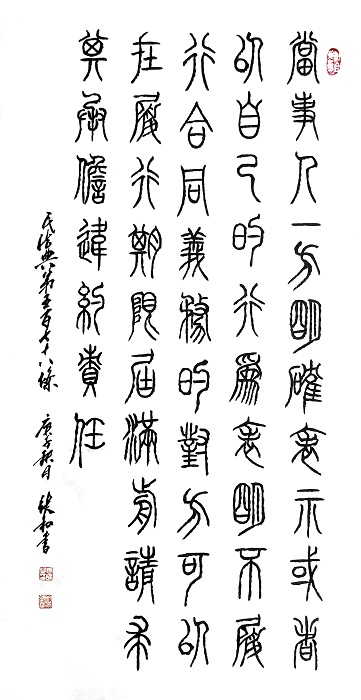 當事人一方明確表示或者
以自己的行爲表明不履
行合同義務的對方可以
在履行期限屆滿前請求
其承儋違約責任
民法典第五百七十八條 庚子秋月 書